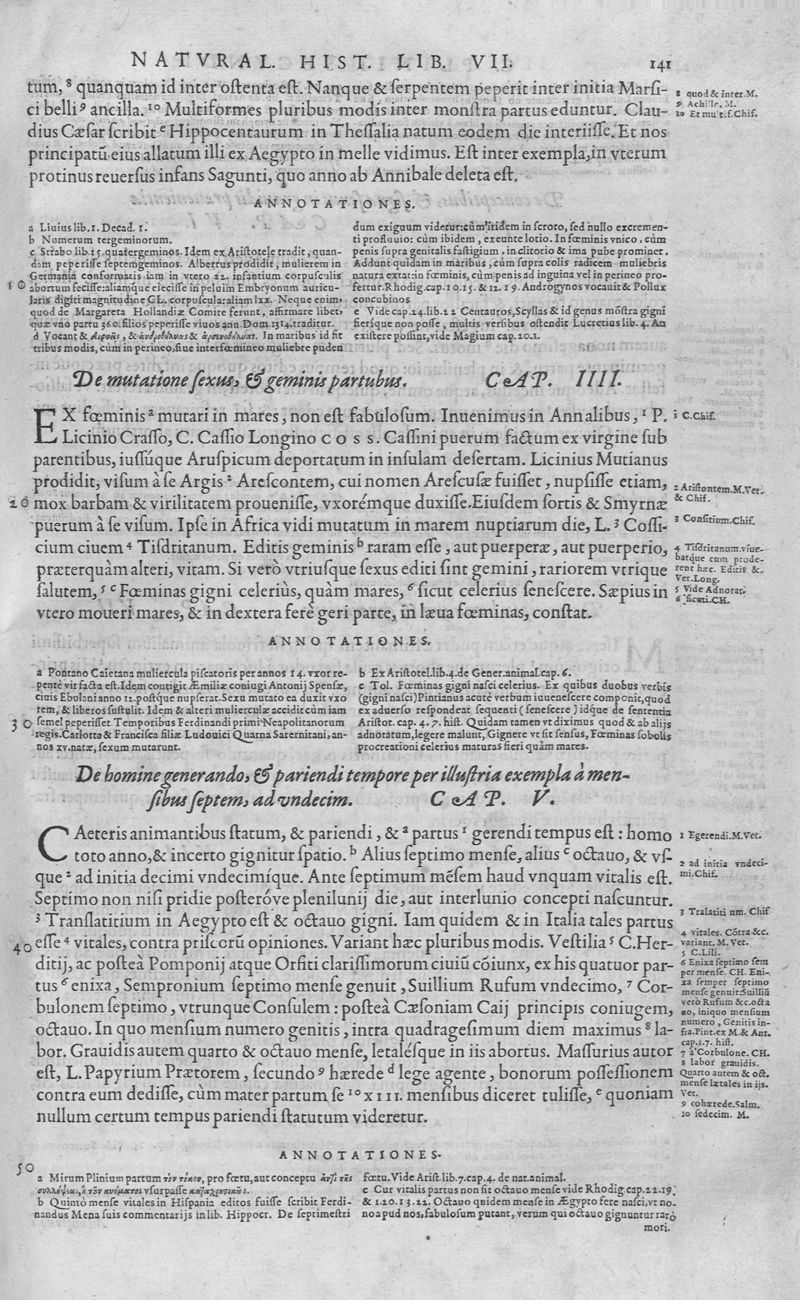 NATVRAL. HIST. LIB. VII. 141
tum, 8 quanquam id inter oſtenta eſt. Nanque & ſerpentem peperit inter initia Marſi-
ci belli 9 ancilla. 10 Multiformes pluribus modis inter monſtra partus eduntur. Clau-
dius Cæſar ſcribit e Hippocentaurum in Theſſalia natum eodem die interiiſſe. Et nos
principatū eius allatum illi ex Aegypto in melle vidimus. Eſt inter exempla, in vterum
protinus reuerſus infans Sagunti, quo anno ab Annibale deleta eſt.
8 quod & inter. M.
9 Achille. M.
10 Et mult. f. Chif.
ANNOTATIONES.
a Liuius lib. 1. Decad. 1.
b Numerum tergeminorum.
c Strabo lib. 15. quatergeminos. Idem ex Ariſtotele tradit, quan-
dam peperiſſe ſeptemgeminos. Albertus prodidit, mulierem in
Germania conformatis iam in vtero 22. infantium corpuſculis
10 abortum feciſſe: aliamque eieciſſe in peluim Embryonum auricu-
laris digiti magnitudine CL. corpuſcula: aliam lxx. Neque enim,
quod de Margareta Hollandiæ Comite ferunt, affirmare libet,
quæ vno partu 360. filios peperiſſe viuos ann. Dom. 1314. traditur.
d Vocant & In maribus id ſit
tribus modis, cùm in perineo, ſiue interfœmineo muliebre puden
dum exiguum videtur: cùm itidem in ſcroto, ſed nullo excremen-
ti profluuio: cùm ibidem, exeunte lotio. In fœminis vnico, cùm
penis ſupra genitalis faſtigium, in clitorio & ima pube prominet,
Addunt quidam in maribus, cùm ſupra colis radicem muliebris
natura extat: in fœminis, cùm penis ad inguina vel in perineo pro-
fertur. Rhodig. cap. 10. 15. & 12. 19. Androgynos vocauit & Pollux
concubinos
e Vide cap. 24. lib. 22 Centauros, Scyllas & id genus mōſtra gigni
fierique non poſſe, multis verſibus oſtendit Lucretius lib. 4. An
exiſtere poſſint, vide Magium cap. 20. 1.
De mutatione ſexus, & geminis partubus. CAP. IIII.
EX fœminis a mutari in mares, non eſt fabuloſum. Inuenimus in Annalibus, 1 P.
Licinio Craſſo, C. Caſſio Longino COSS. Caſſini puerum factum ex virgine ſub
parentibus, iuſſúque Aruſpicum deportatum in inſulam deſertam. Licinius Mutianus
prodidit, viſum à ſe Argis 2 Areſcontem, cui nomen Areſcuſæ fuiſſet, nupſiſſe etiam,
20 mox barbam & virilitatem proueniſſe, vxorémque duxiſſe. Eiuſdem ſortis & Smyrnæ
puerum à ſe viſum. Ipſe in Africa vidi mutatum in marem nuptiarum die, L. 3 Coſſi-
cium ciuem 4 Tiſdritanum. Editis geminis b raram eſſe, aut puerperæ, aut puerperio,
præterquàm alteri, vitam. Si verò vtriuſque ſexus editi ſint gemini, rariorem vtrique
ſalutem, 5 c Fœminas gigni celeriùs, quàm mares, 6 ſicut celerius ſeneſcere. Sæpius in
vtero moueri mares, & in dextera ferè geri parte, in læua fœminas, conſtat.
1 C. Chif.
2 Ariſtontem. M. Vet.
& Chif.
3 Conſitium. Chif.
4 Tiſdritanum. viue-
batque cum prode-
rent hæc. Editis &.
Vet. Long.
5 Vide Adnotat.
6 ſicuti. CH.
ANNOTATIONES.
a Pontano Caietana muliercula piſcatoris per annos 14. vxor re-
pentè vir facta eſt. Idem contigit Æmiliæ coniugi Antonij Spenſæ,
ciuis Ebulani anno 12. poſtque nupſerat. Sexu mutato ea duxit vxo
rem, & liberos ſuſtulit. Idem & alteri mulierculæ accidit cùm iam
30 ſemel peperiſſet Temporibus Ferdinandi primi Neapolitanorum
regis. Carlotta & Franciſca filiæ Ludouici Quarna Sarernitani, an-
nos xv. natæ, ſexum mutarunt.
b Ex Ariſtotel. lib. 4. de Gener. animal. cap. 6.
c Tol. Fœminas gigni naſci celerius. Ex quibus duobus verbis
(gigni naſci) Pintianus acutè verbum iuueneſcere componit, quod
ex aduerſo reſpondeat ſequenti (ſeneſcere) idque de ſententia
Ariſtot. cap. 4. 7. hiſt. Quidam tamen vt diximus quod & ab alijs
adnotatum, legere malunt, Gignere vt ſit ſenſus, Fœminas ſobolis
procreationi celerius maturas fieri quàm mares.
De homine generando, & pariendi tempore per illuſtria exempla à men-
ſibus ſeptem, ad vndecim. CAP. V.
CAeteris animantibus ſtatum, & pariendi, & a partus 1 gerendi tempus eſt: homo
toto anno, & incerto gignitur ſpatio. b Alius ſeptimo menſe, alius c octauo, & vſ-
que 2 ad initia decimi vndecimíque. Ante ſeptimum mēſem haud vnquam vitalis eſt.
Septimo non niſi pridie poſteróve plenilunij die, aut interlunio concepti naſcuntur.
3 Tranſlatitium in Aegypto eſt & octauo gigni. Iam quidem & in Italia tales partus
40 eſſe 4 vitales, contra priſcorū opiniones. Variant hæc pluribus modis. Veſtilia 5 C. Her-
ditij, ac poſteà Pomponij atque Orfiti clariſſimorum ciuiū cōiunx, ex his quatuor par-
tus 6 enixa, Sempronium ſeptimo menſe genuit, Suillium Rufum vndecimo, 7 Cor-
bulonem ſeptimo, vtrunque Conſulem: poſteà Cæſoniam Caij principis coniugem,
octauo. In quo menſium numero genitis, intra quadrageſimum diem maximus 8 la-
bor. Grauidis autem quarto & octauo menſe, letaléſque in iis abortus. Maſſurius autor
eſt, L. Papyrium Prætorem, ſecundo 9 hærede d lege agente, bonorum poſſeſſionem
contra eum dediſſe, cùm mater partum ſe 10 XIII. menſibus diceret tuliſſe, e quoniam
nullum certum tempus pariendi ſtatutum videretur.
1 Egerendi. M. Vet.
2 ad initia vndeci-
mi. Chif.
3 Tralatiti um. Chif
4 vitales. Cōtra &c.
variant. M. Vet.
5 C. Lili.
6 Enixa ſeptimo ſem
per menſe. CH. Eni-
xa ſemper ſeptimo
menſe genuit: Suilliū
verò Rufum &c. octa
uo, iniquo menſium
numero, Genitis in-
fra. Pint. ex M. & Ant.
cap. 5. 7. hiſt.
7 à Corbulone. CH.
8 labor grauidis.
Quarto autem & oct.
menſe lætales in ijs.
Vet.
9 cohærede. Salm.
10 ſedecim. M.
ANNOTATIONES.
50
a Mirum Plinium partum τὸν τόκον, pro fœtu, aut conceptu
vſurpaſſe
b Quintò menſe vitales in Hiſpania editos fuiſſe ſcribit Ferdi-
nandus Mena ſuis commentarijs in lib. Hippocr. De ſeptimeſtri
fœtu. Vide Ariſt. lib. 7. cap. 4. de nat. animal.
c Cur vitalis partus non ſit octauo menſe vide Rhodig. cap. 22. 19.
& 120. 13. 22. Octauo quidem menſe in Ægypto fere naſci, vt no-
noa pud nos, fabuloſum putant, verum qui octauo gignuntur rarò
mori.